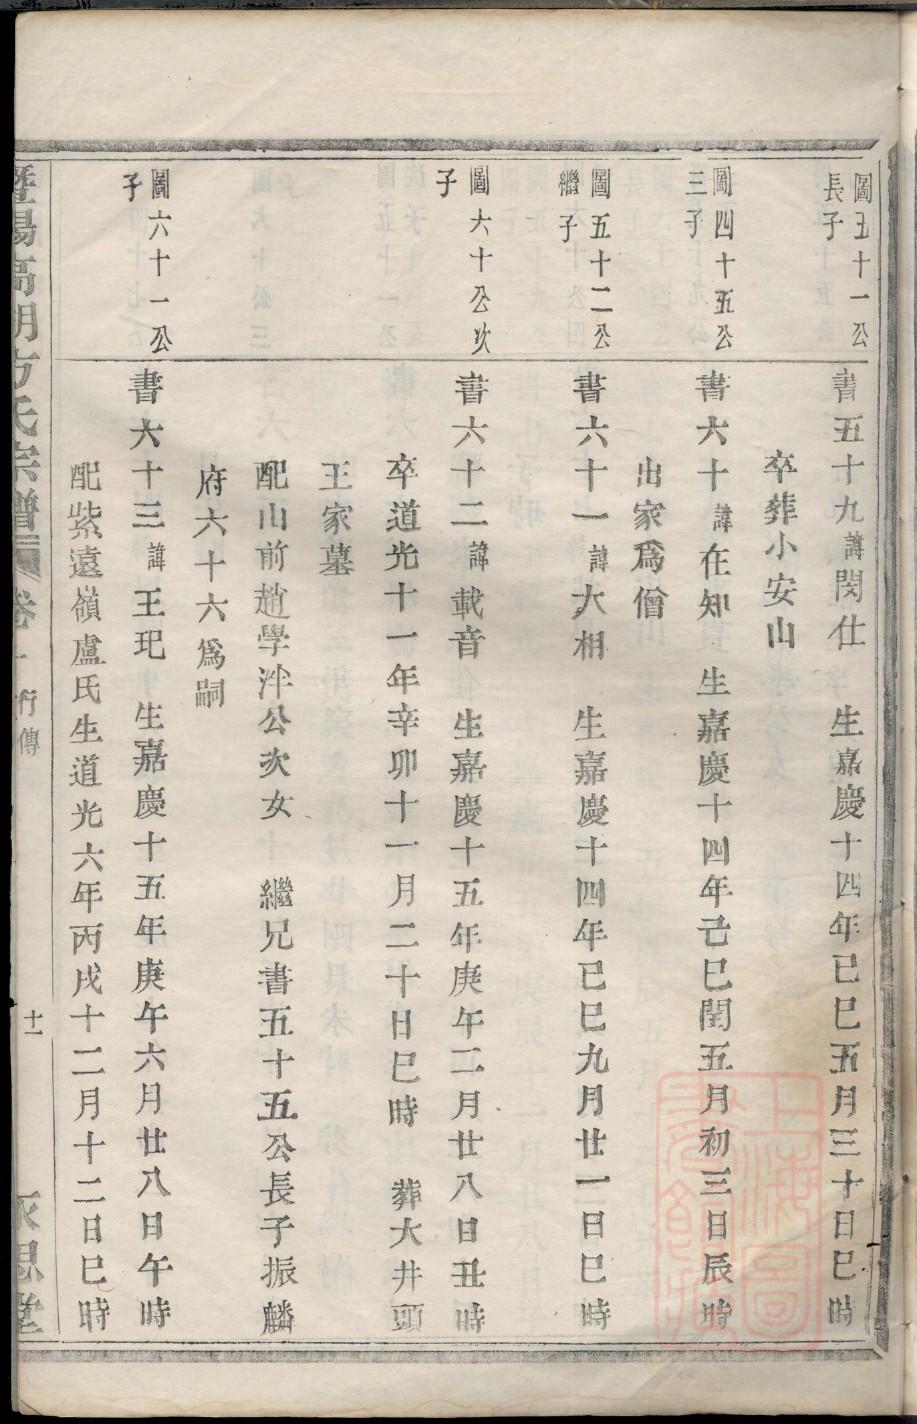 圖五十一公
長子
書五十九諱閔仕　生嘉慶十四年己巳五月三十日巳時
卒葬小安山
圖四十五公
三子
書六十諱在知　生嘉慶十四年己巳閏五月初三日辰時
出家爲僧
圖五十二公
繼子
書六十一諱大相　生嘉慶十四年己巳九月廿一日巳時
圖六十公次
子
書六十二諱載音　生嘉慶十五年庚午二月廿八日丑時
卒道光十一年辛卯十一月二十日巳時　葬大井頭
王家墓
配山前趙學泮公次女　繼兄書五十五公長子振麟
府六十六爲嗣
圖六十一公
子
書六十三諱王玘　生嘉慶十五年庚午六月廿八日午時
配紫遠嶺盧氏生道光六年丙戌十二月十二日巳時
暨陽高湖方氏宗譜
卷一　行傳
十一
永思堂